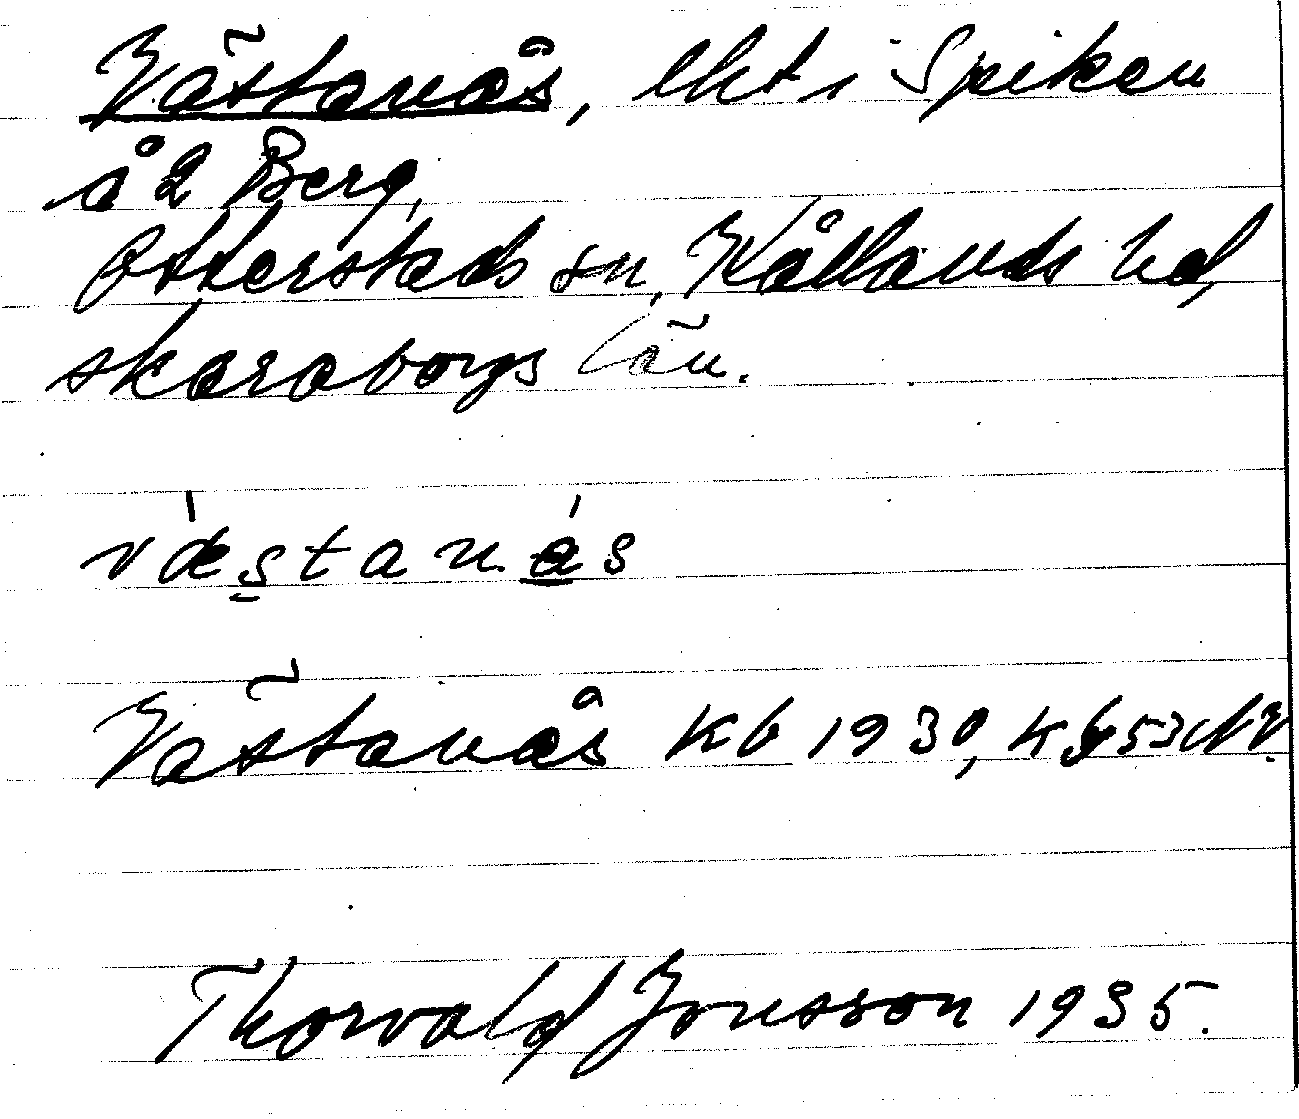 Västanås, lht i Spiken
å 2 Berg,
Otterstads sn, Kållands hd,
Skaraborgs län.
væstanås
Västanås Kb 1930,
Thorvald Jonsson 1935.